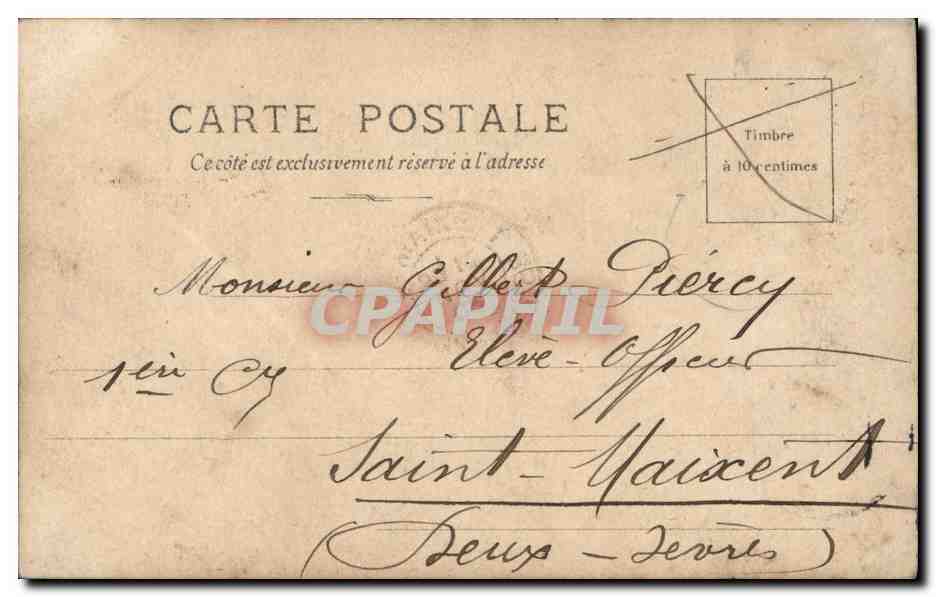 CARTE POSTALE
Ce côté est exclusivement réservé à l'adresse
Timbre
à 10 centimes
Monsieur Gilbert Piércy
Elève-Officier
1ère Cie
Saint-Maixent
(Deux-Sèvres)
CPAPHIL